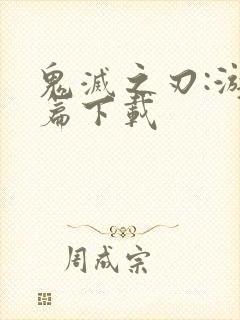 鬼滅之刃:游
篇下載
周成宗